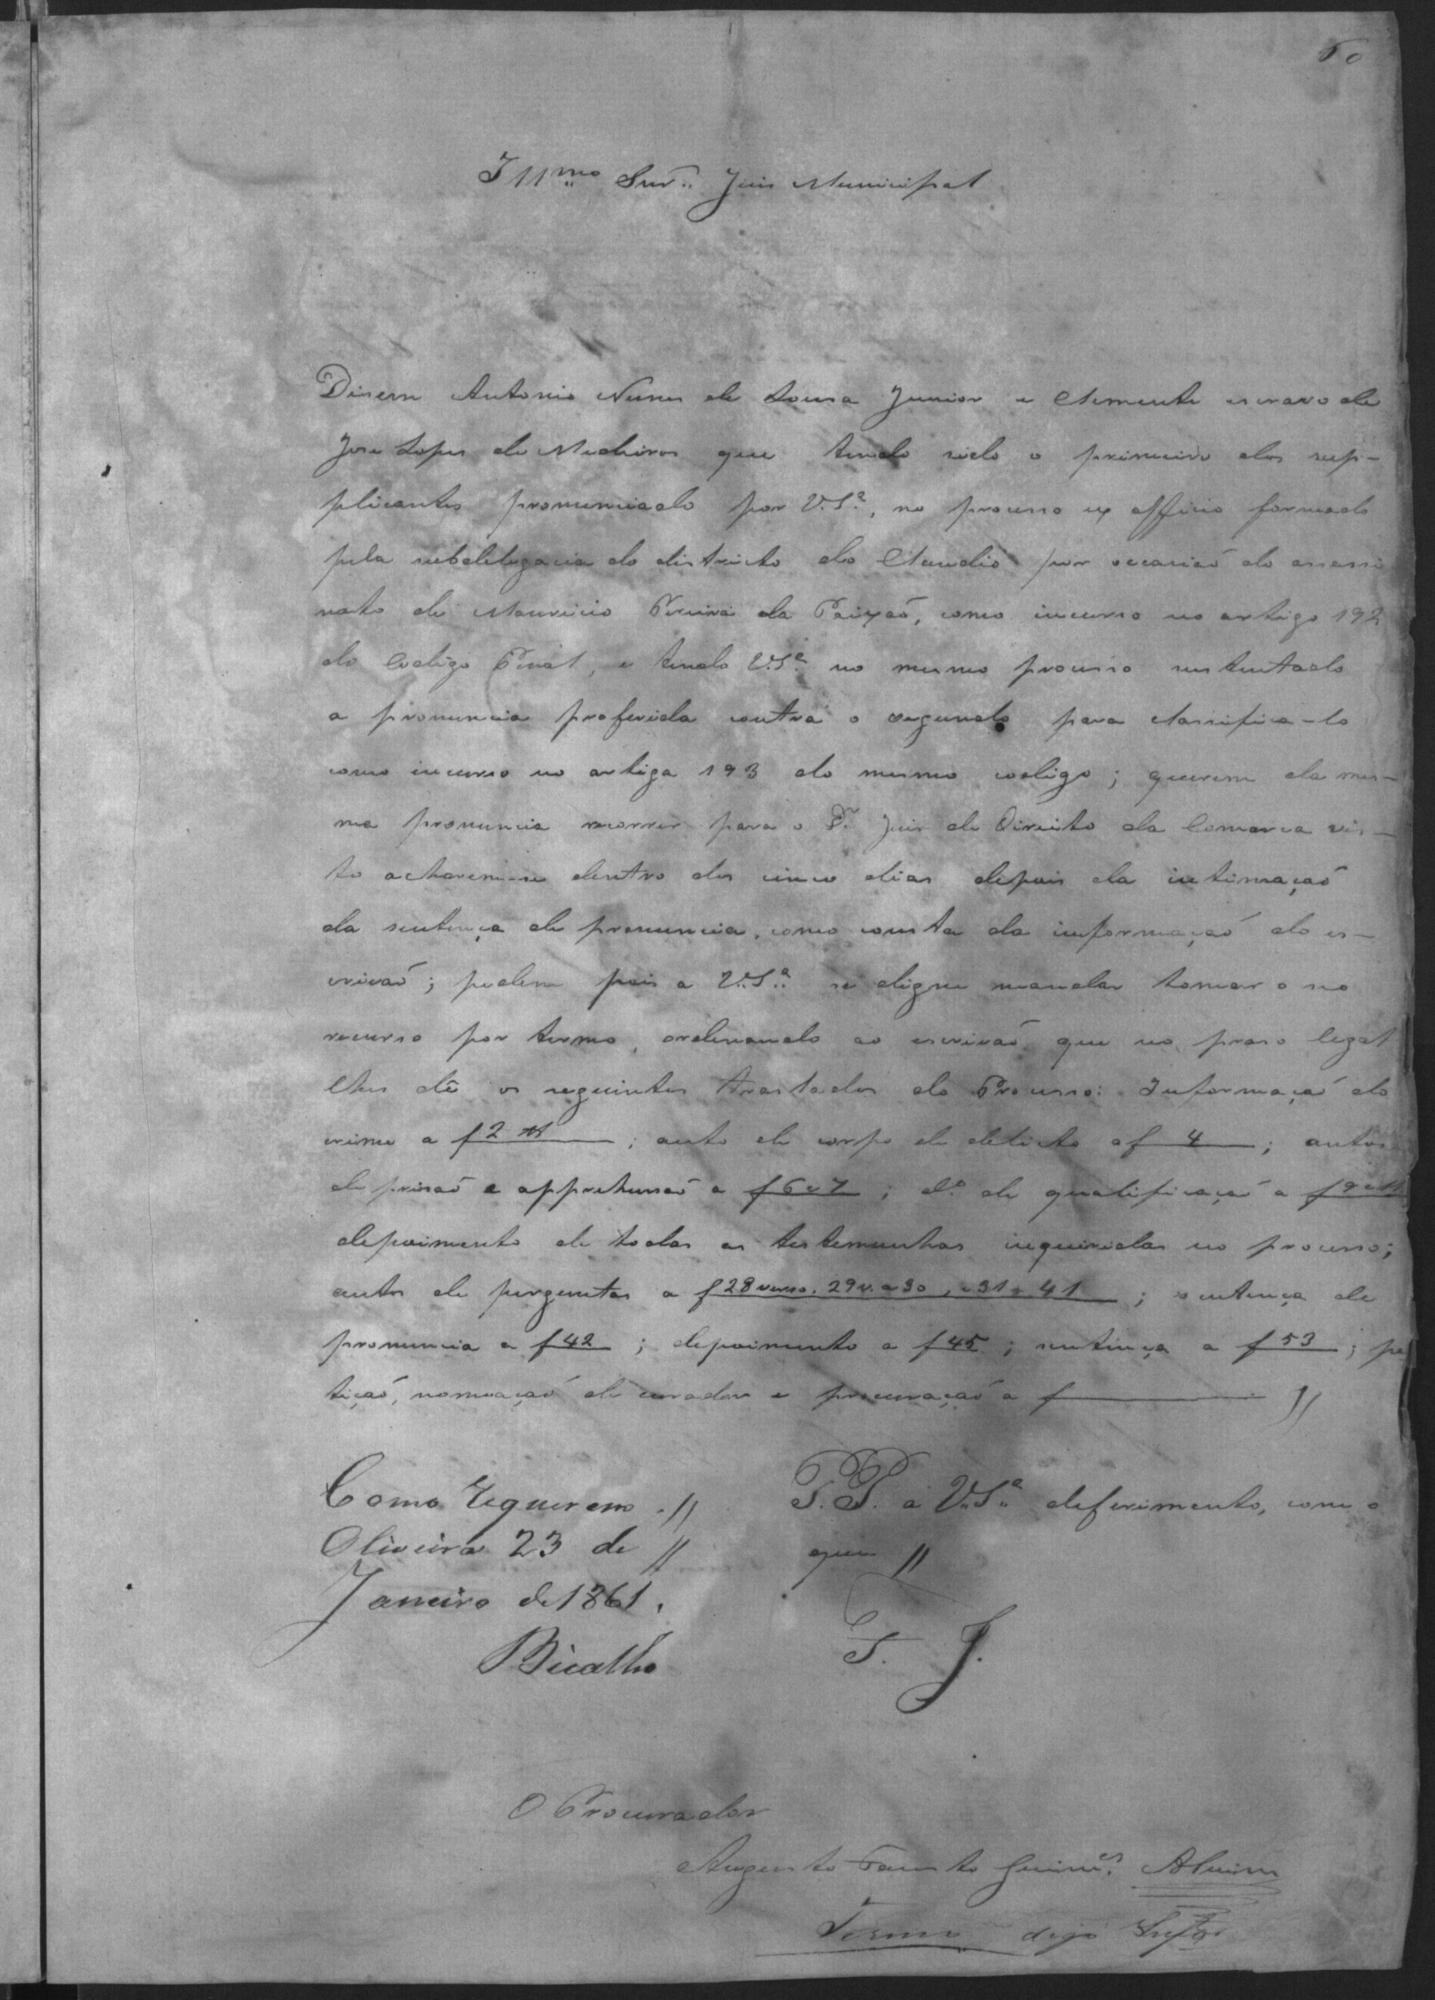 60
Illmo Snr. Juis Municipal
Disem Antonio Nunes de Sousa Junior e Clemente escravo de
Jose Lopes de Medeiros que tendo sido o primeiro dos sup-
plicantes pronunciado por V.Sª, no processo ex officio formado
pela subdelegacia do districto do Claudio por occasião do assassi
nato de Mauricio Pereira da Paixão, como incurso no artigo 192
do Codigo Penal, e tendo V.Sª no mesmo processo sustentado
a pronuncia proferida contra o segundo para classifica-lo
como incurso no artigo 193 do mesmo codigo; querem da mes-
ma pronuncia recorrer para o Dr. Juis de Direito da Comarca vis-
to acharem-se dentro dos cinco dias depois da intimação
da sentença de pronuncia, como consta da informação do es-
crivão; pedem pois a V.Sª se digne mandar tomar o seo
recurso por termo, ordenando ao escrivão que no praso legal
lhes dê os seguintes traslados do Processo: Informação do
crime a f 2; auto de corpo de delicto a f 4; autos
de prisão e apprehensão a f 6 e 7; dº de qualificação a f
depoimento de todas as testemunhas inqueridas no processo;
autos de perguntas a f 28 verso, 29 v. a 30, e 31 a 41; sentença de
pronuncia a f 42; depoimento a f 45; sentença a f 53; pe
tição, nomeação de curador e procuração a f
P.P. a V.Sª deferimento, com o
que
E. J.
Como requerem.
Oliveira 23 de
Janeiro de 1861.
Bicalho
O Procurador
Augusto Fausto Guimes. Alvim
Termo digo